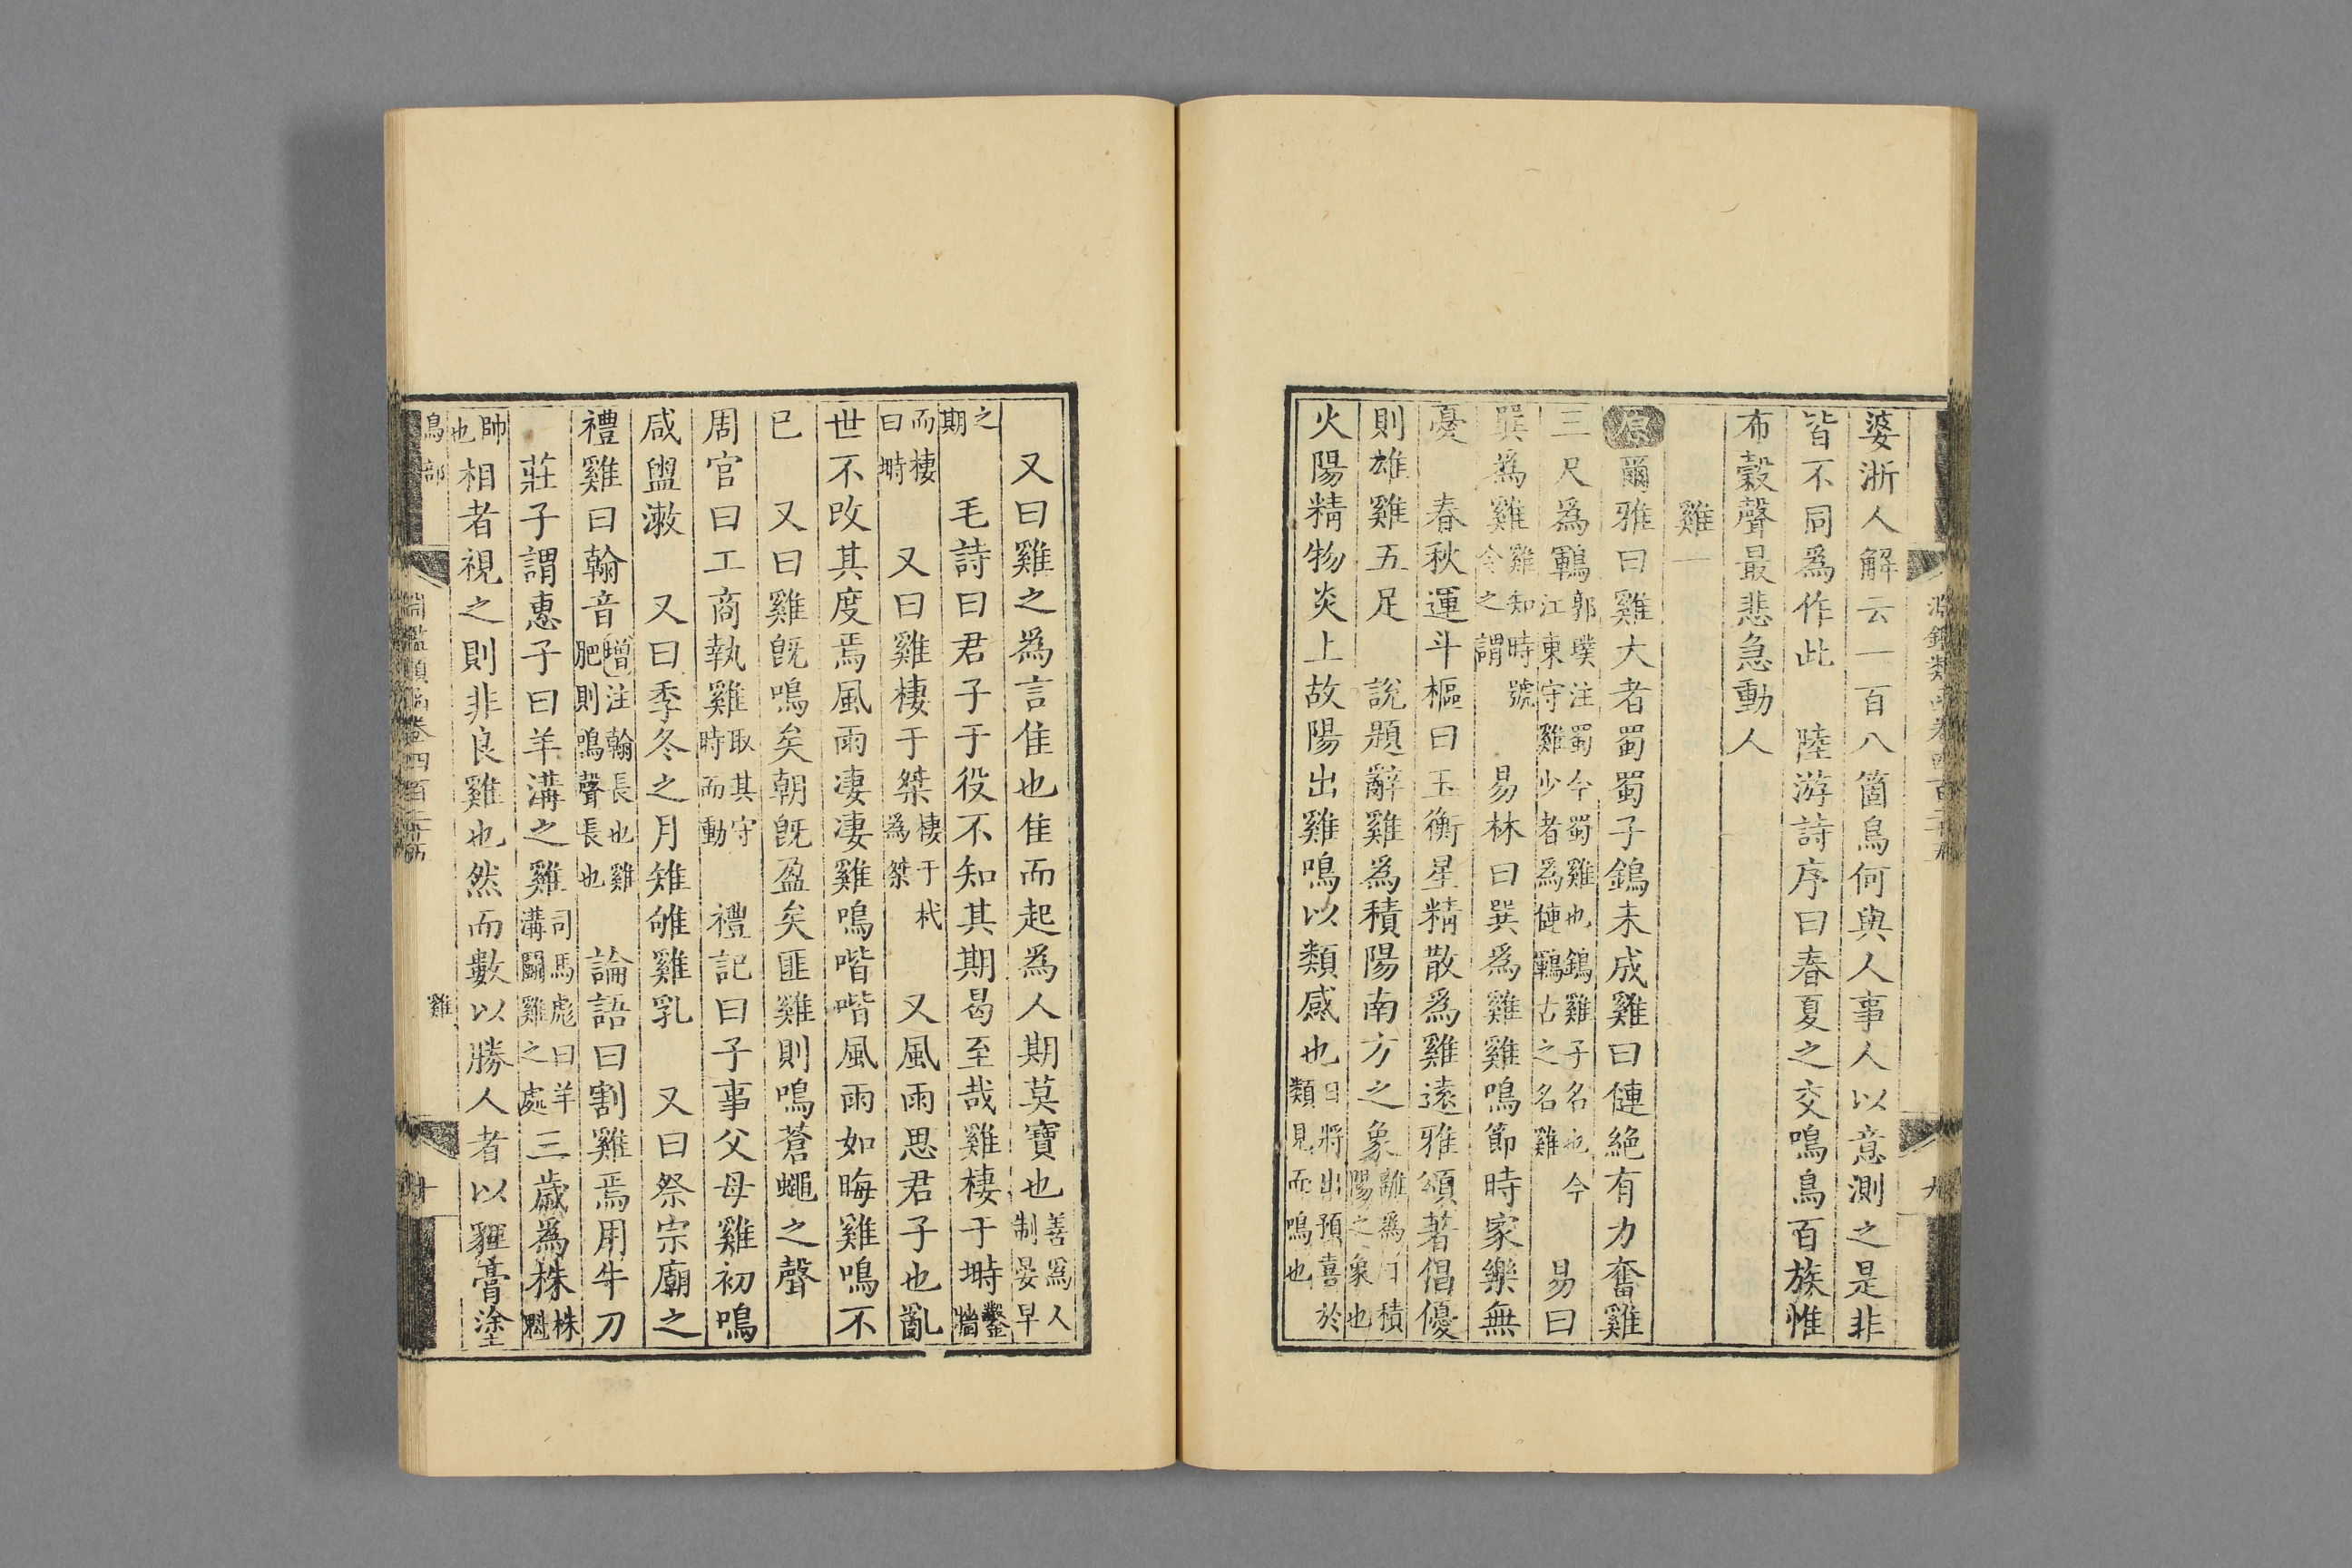 婆浙人解云一百八箇鳥何與人事人以意測之是非
皆不同爲作此　陸游詩序曰春夏之交鳴鳥百族惟
布穀聲最悲急動人
雞一
原爾雅曰雞大者蜀蜀子鶵未成雞曰僆絶有力奮雞
三尺爲鶤郭璞注蜀今蜀雞也鶵雞子名也今江東守雞少者爲僆鶤古之名雞　易曰
巽爲雞雞知時號令之謂　易林曰巽爲雞雞鳴節時家樂無
憂　春秋運斗樞曰玉衡星精散爲雞遠雅頌著倡優
則雄雞五足　説題辭雞爲積陽南方之象離爲日積陽之象也
火陽精物炎上故陽出雞鳴以類感也日將出預喜於類見而鳴也
又曰雞之爲言隹也隹而起爲人期莫寶也善爲人制晏早
之期　毛詩曰君子于役不知其期曷至哉雞棲于塒鑿牆
而棲曰塒　又曰雞棲于桀棲于杙爲桀　又風雨思君子也亂
世不改其度焉風雨凄凄雞鳴喈喈風雨如晦雞鳴不
已　又曰雞旣鳴矣朝旣盈矣匪雞則鳴蒼蠅之聲
周官曰工商執雞取其守時而動　禮記曰子事父母雞初鳴
咸盥漱　又曰季冬之月雉雊雞乳　又曰祭宗廟之
禮雞曰翰音增注翰長也雞肥則鳴聲長也　論語曰割雞焉用牛刀
莊子謂惠子曰羊溝之雞司馬彪曰羊溝鬬雞之處三歲爲株株魁
帥也相者視之則非良雞也然而數以勝人者以貍膏塗
鳥部　雞